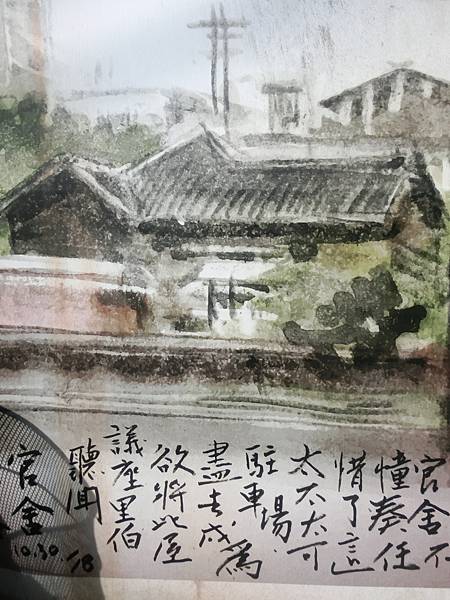 官舍
10.30/18
聽聞
議座里伯
欲將此屋
盡去成,為
駐車場.
太不太可
惜了這
憧奏任
官舍不